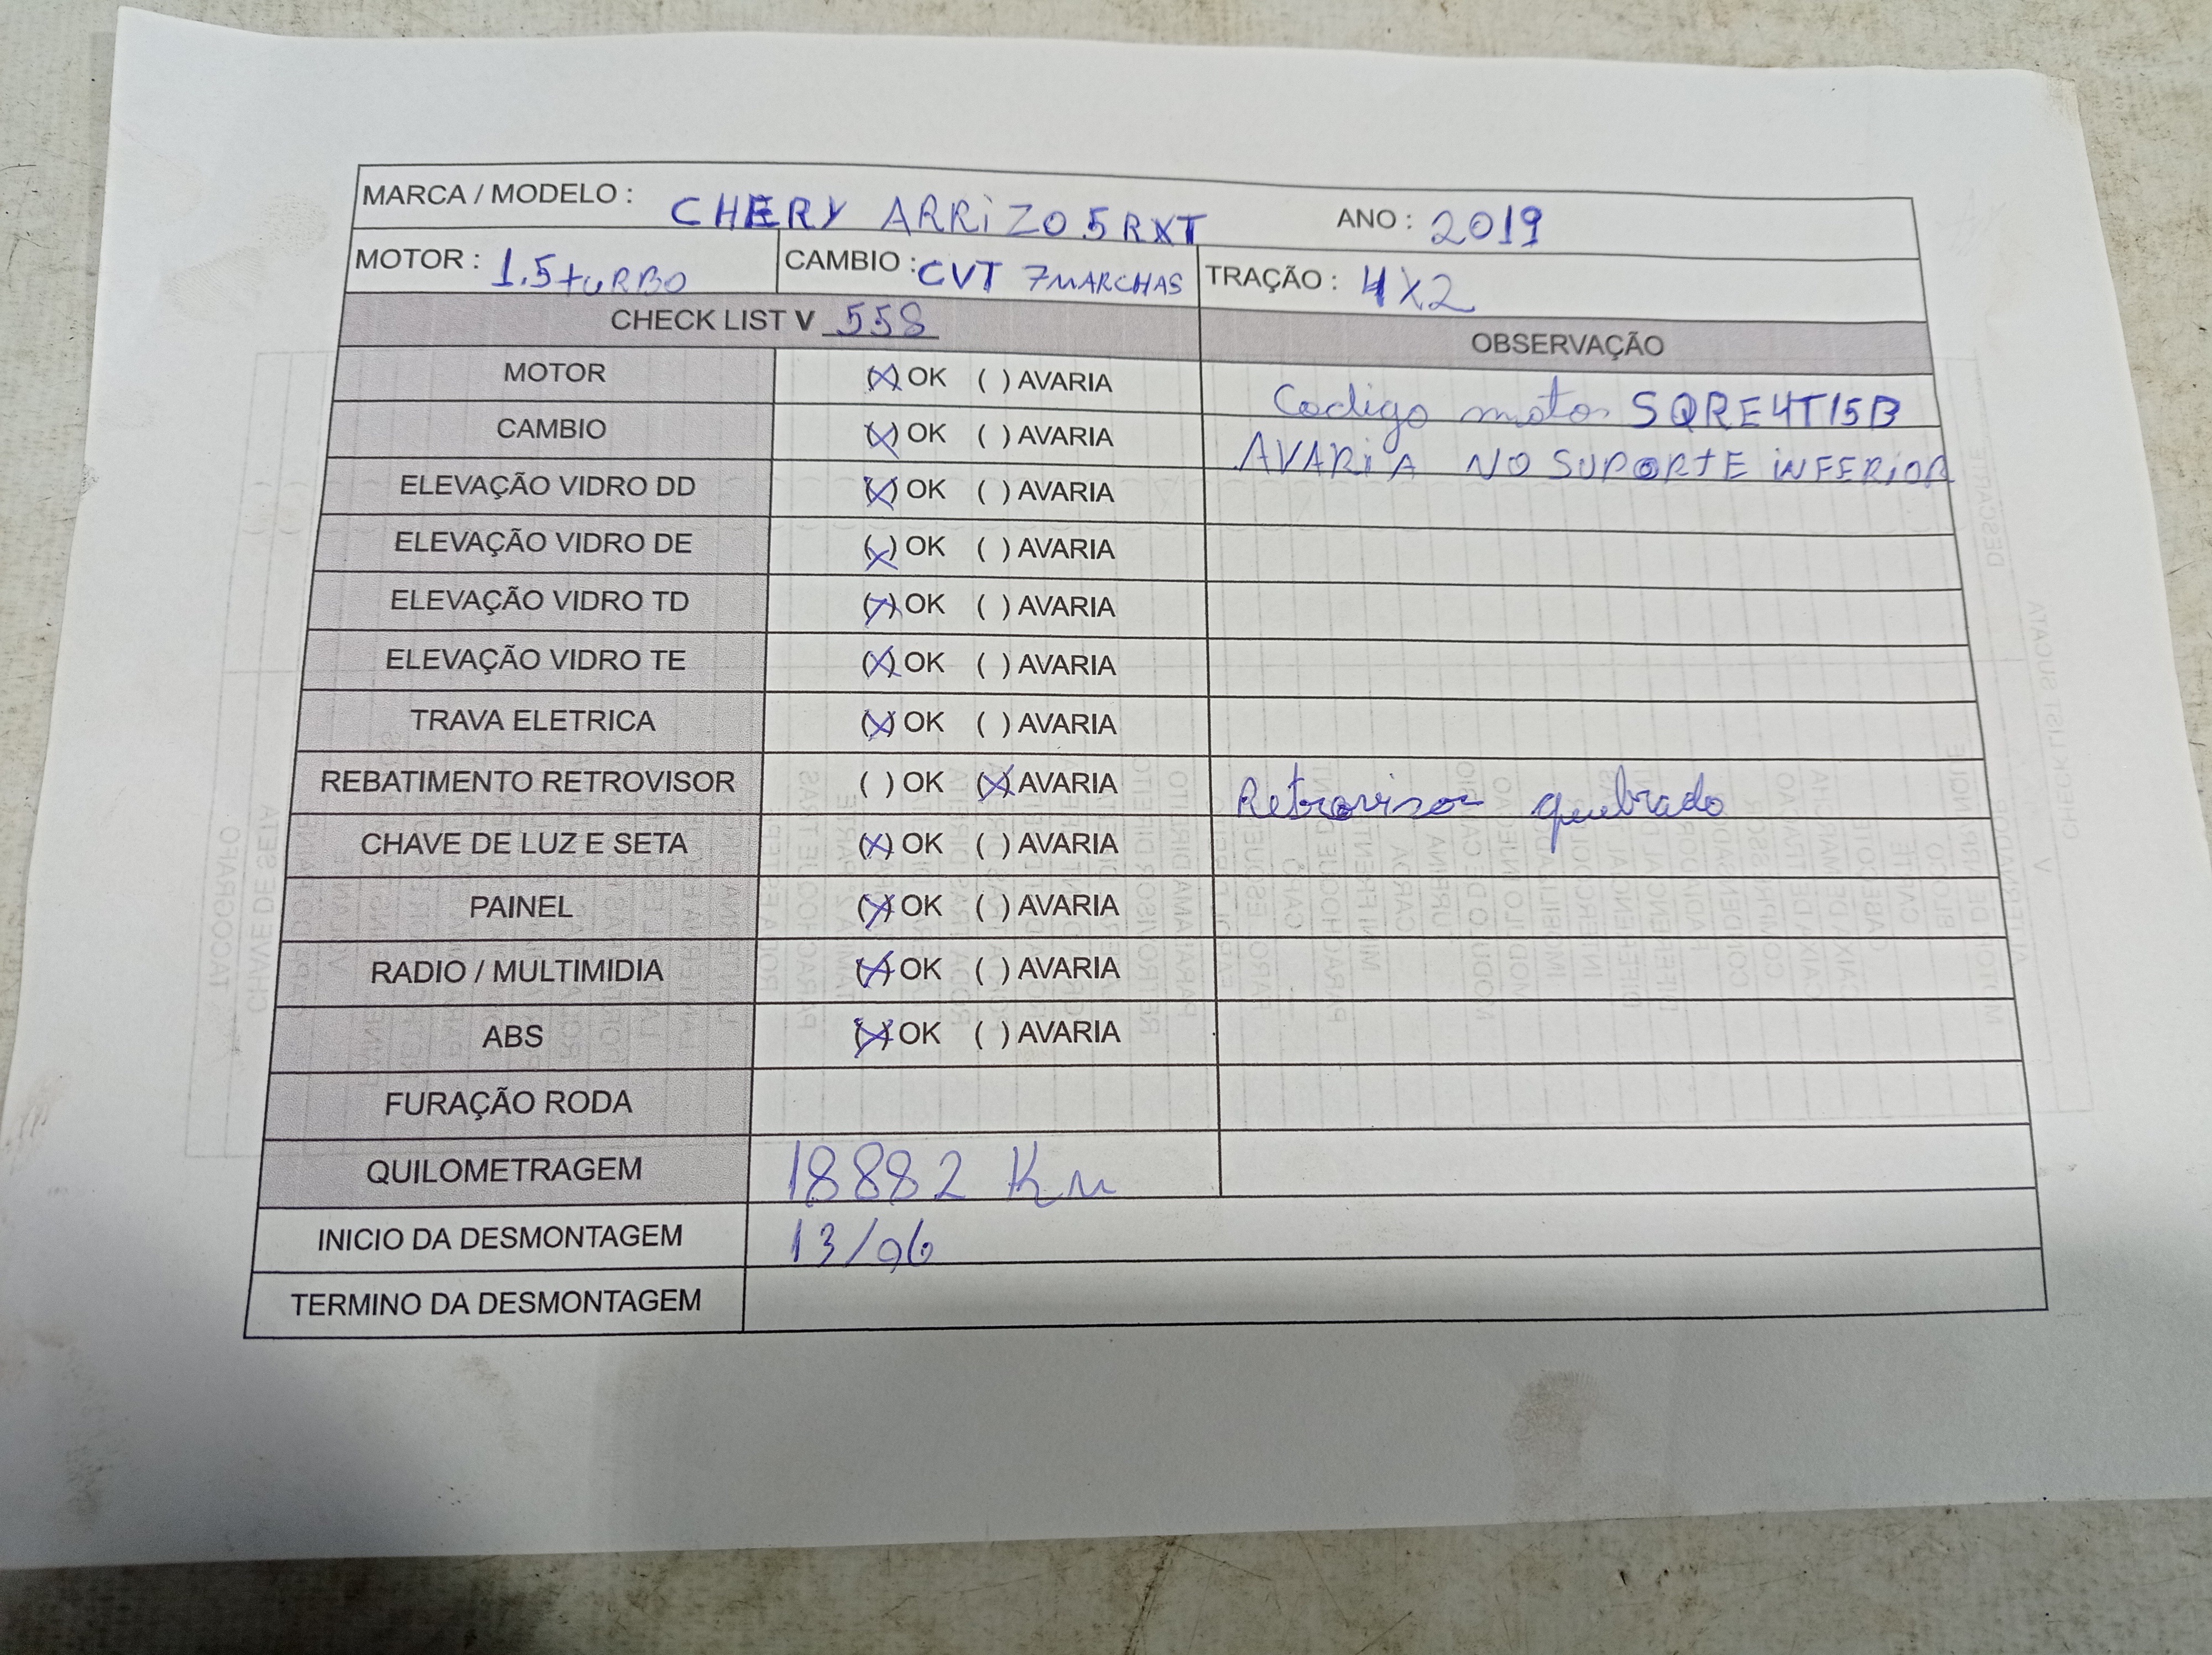 MARCA / MODELO : CHERY ARRiZO 5 RXT ANO : 2019
MOTOR : 1.5 tuRBO CAMBIO : CVT 7MARCHAS TRAÇÃO : 4X2
CHECK LIST V 558 OBSERVAÇÃO
MOTOR (X) OK ( ) AVARIA Codigo motor SQRE4T15B
CAMBIO (X) OK ( ) AVARIA AVARiA NO SUPORtE iNFERiOR
ELEVAÇÃO VIDRO DD (X) OK ( ) AVARIA
ELEVAÇÃO VIDRO DE (X) OK ( ) AVARIA
ELEVAÇÃO VIDRO TD (X) OK ( ) AVARIA
ELEVAÇÃO VIDRO TE (X) OK ( ) AVARIA
TRAVA ELETRICA (X) OK ( ) AVARIA
REBATIMENTO RETROVISOR ( ) OK (X) AVARIA Retrovisor quebrado
CHAVE DE LUZ E SETA (X) OK ( ) AVARIA
PAINEL (X) OK ( ) AVARIA
RADIO / MULTIMIDIA (X) OK ( ) AVARIA
ABS (X) OK ( ) AVARIA
FURAÇÃO RODA
QUILOMETRAGEM 18882 Km
INICIO DA DESMONTAGEM 13/06
TERMINO DA DESMONTAGEM